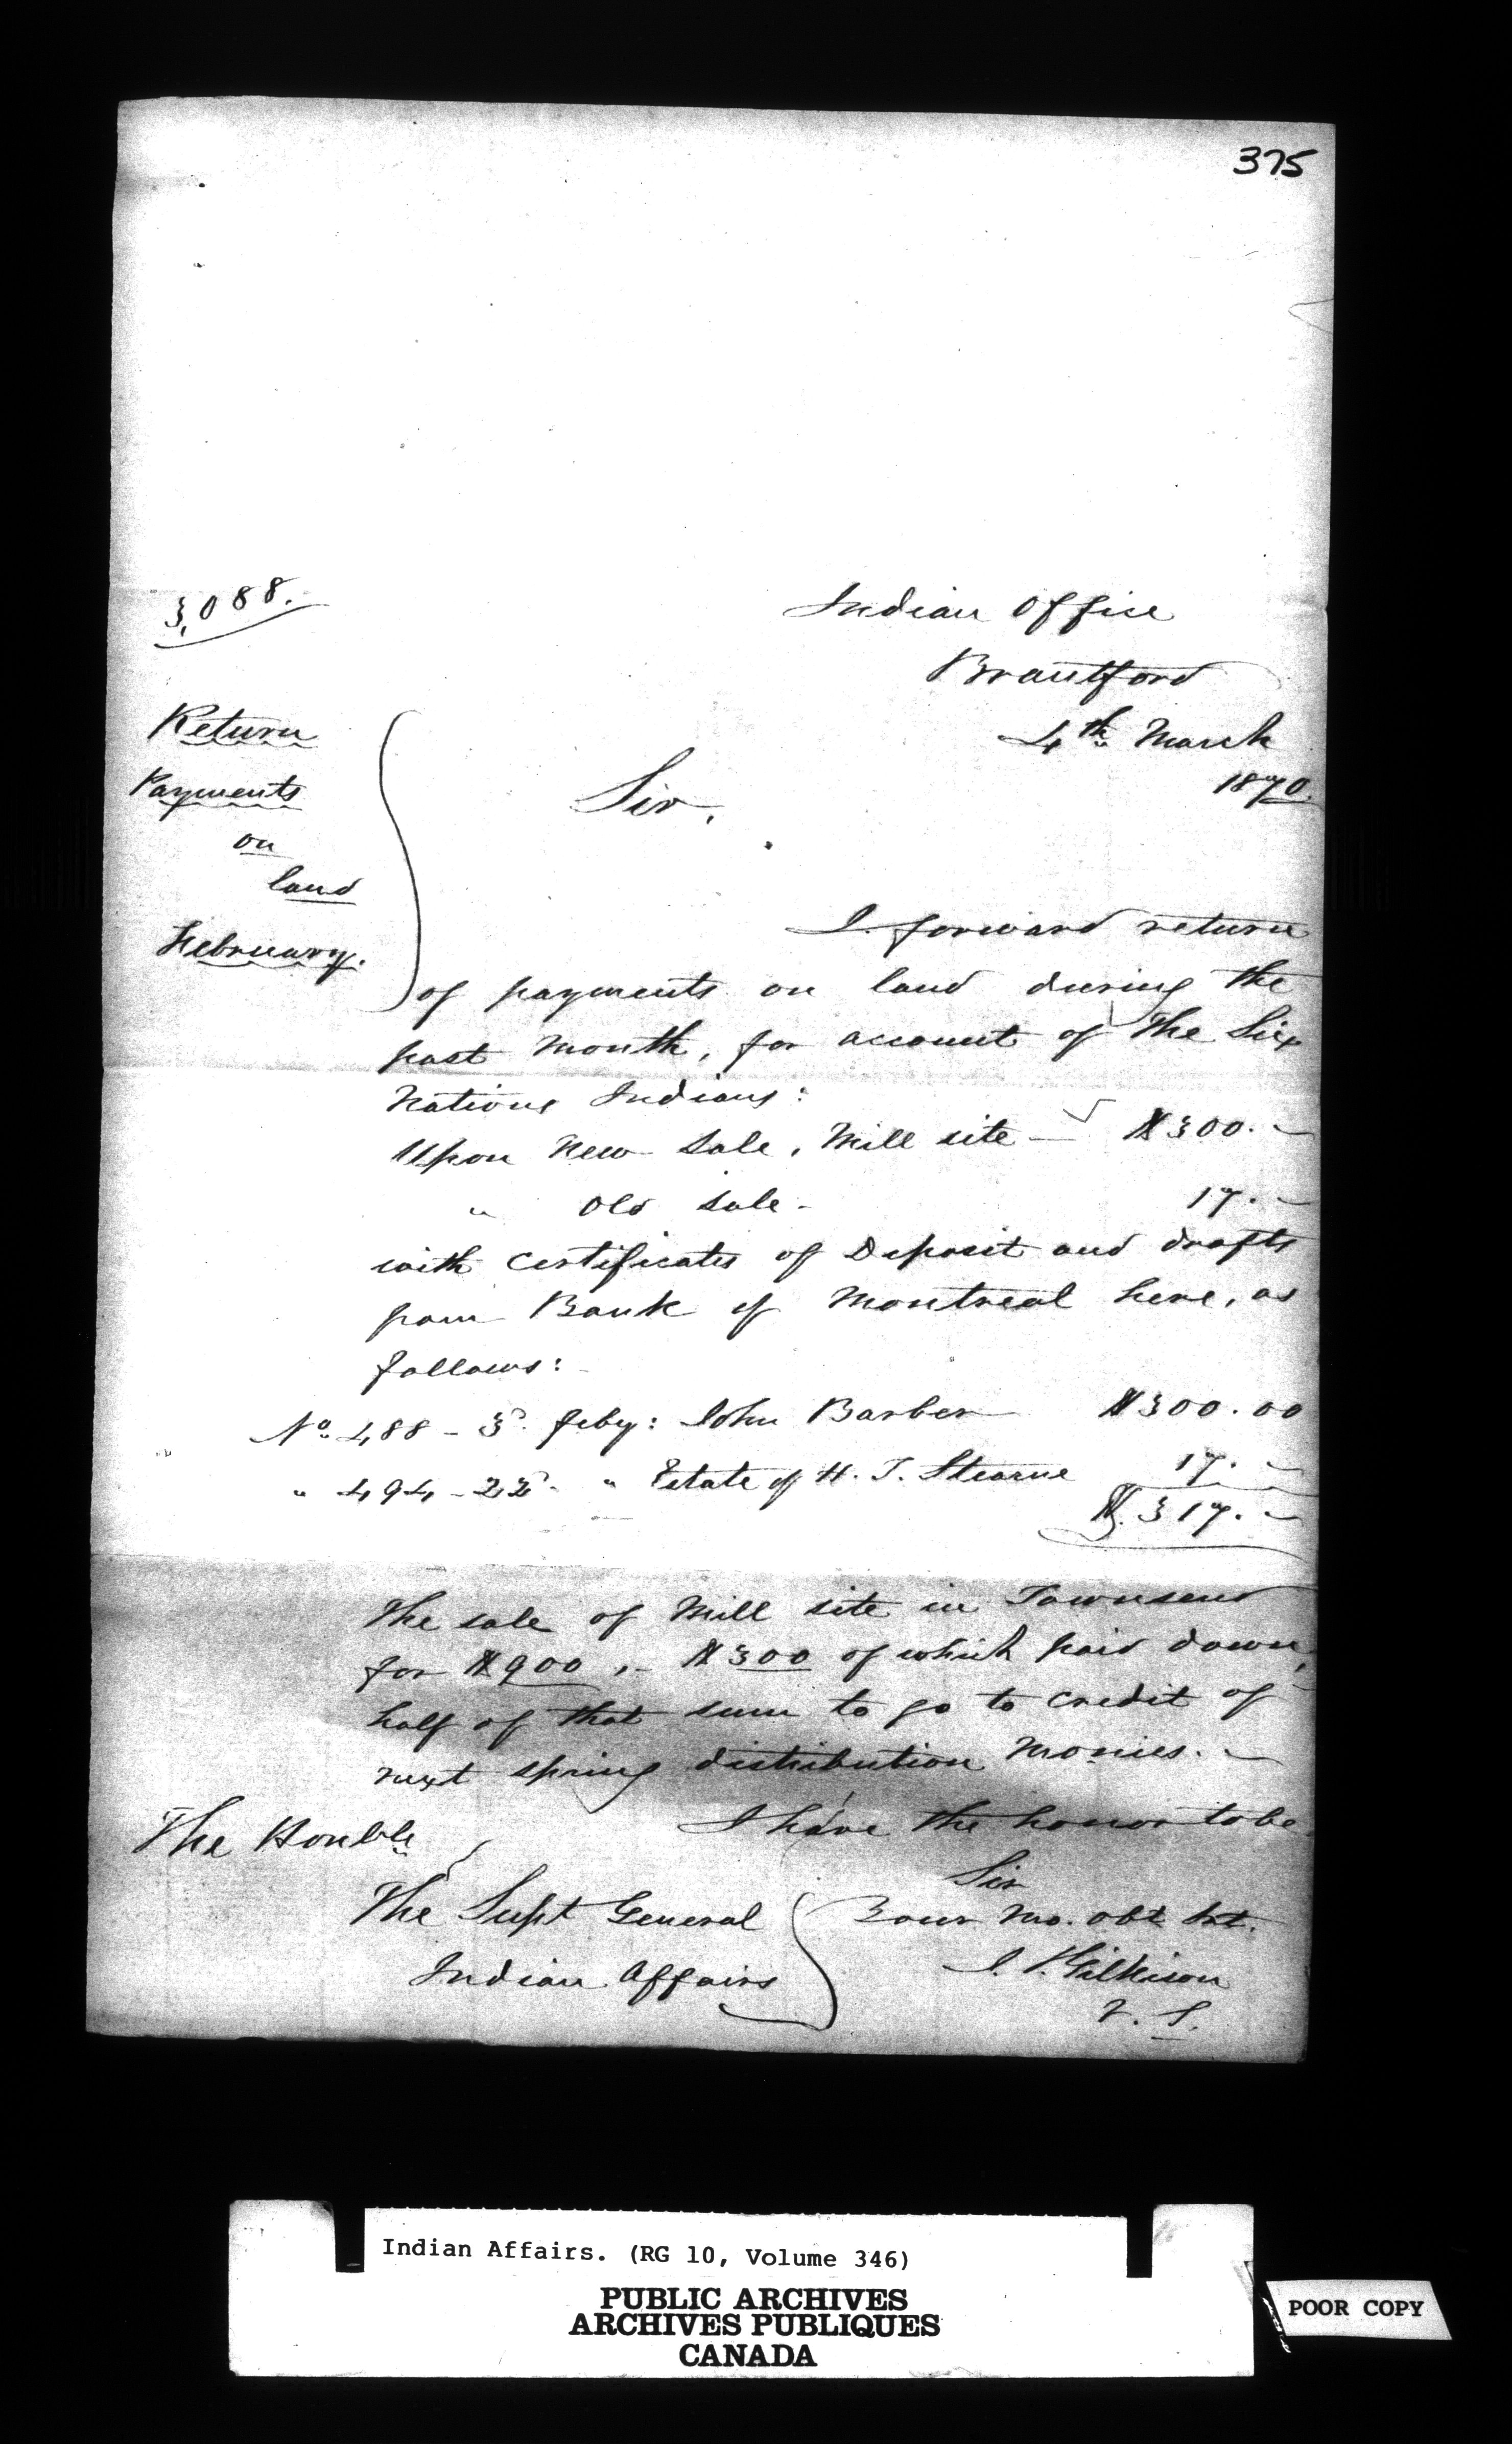 375
3,088.
Indian Office
Brantford
4th March
1870
Return
Payments
on
land
February.
Sir,
I forward return
of payments on land during the
past month, for account of the Six
Nations Indians:
Upon New Sale, Mill site — $300. –
" Old Sale - 17. –
with Certificates of Deposit and drafts
from Bank of Montreal here, as
follows:
No. 488 - 3d. Feby: John Barber $300.00
" 494 - 22d. " Estate of H. T. Stearne 17. –
$317. –
The sale of Mill site in Townsend
for $900, - $300 of which paid down,
half of that sum to go to credit of
next spring distribution monies. –
I have the honor to be
Sir
Your Mo. obt Srt.
J. T. Gilkison
V. S.
The Honble
The Supt General
Indian Affairs
Indian Affairs. (RG 10, Volume 346)
PUBLIC ARCHIVES
ARCHIVES PUBLIQUES
CANADA
POOR COPY